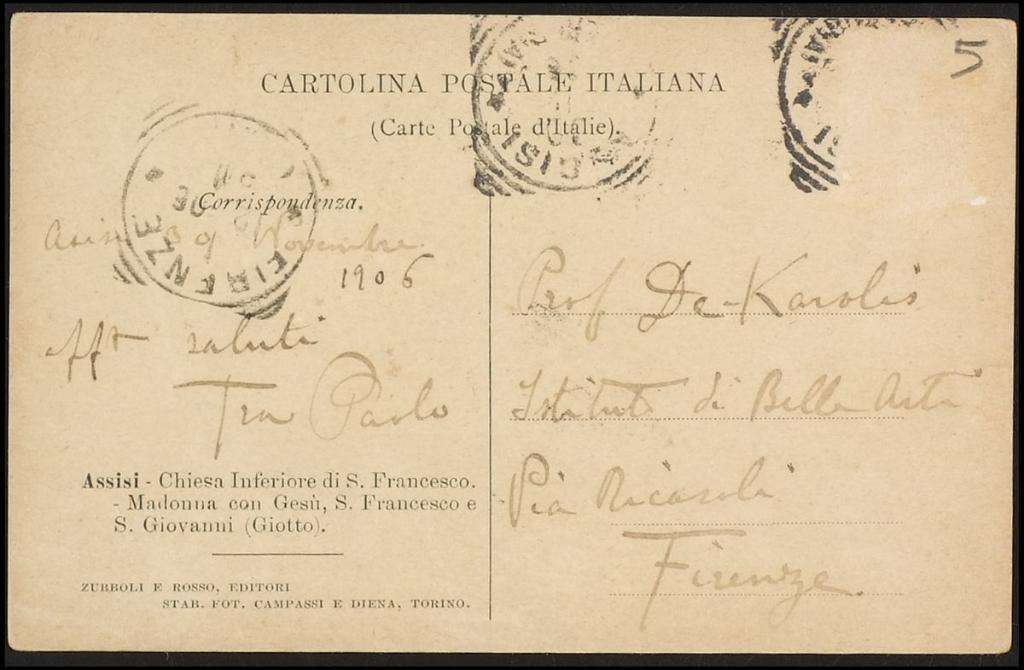 5
CARTOLINA POSTALE ITALIANA
(Carte Postale d'Italie).
Corrispondenza.
FIRENZE
Novembre
1906
afft saluti
Fra Paolo
Assisi - Chiesa Inferiore di S. Francesco.
- Madonna con Gesù, S. Francesco e
S. Giovanni (Giotto).
ZUBBOLI E ROSSO, EDITORI
STAB. FOT. CAMPASSI E DIENA, TORINO.
Prof De-Karolis
Istituto di Belle Arti
Via Ricasoli
Firenze